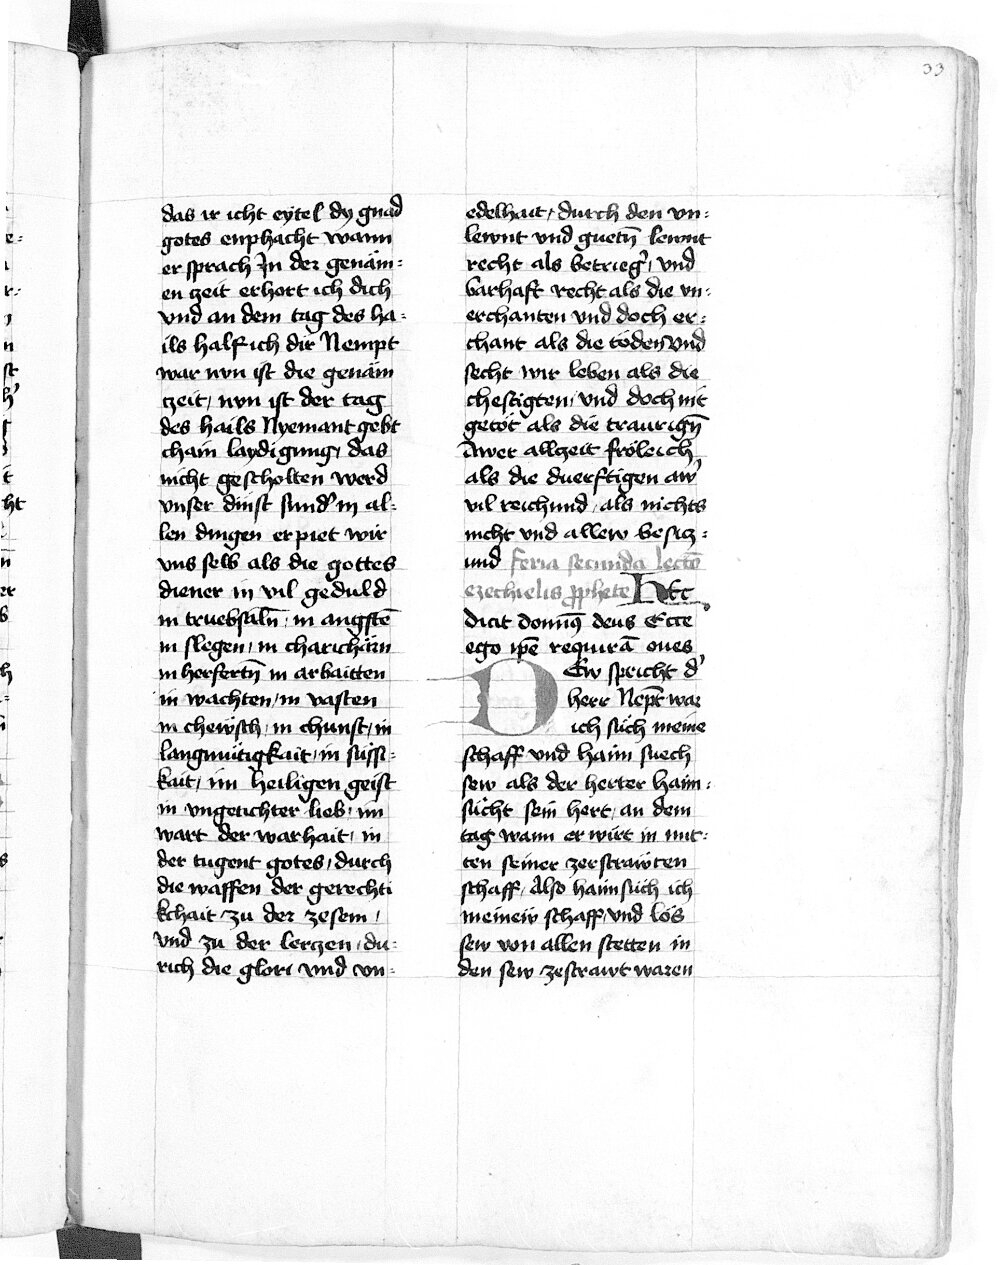 33
das ir icht eytel dy gnad
gotes enphacht wann
er sprach In der genäm-
en zeit erhort ich dich
vnd an dem tag des ha-
ils half ich dir Nempt
war nvn ist die genäm
zeit, nvn ist der tag
des hails Nyemant gebt
chain laydigung, das
nicht gescholten werd
vnser dinst sund' in al-
len dingen erpiet wir
vns selb als die gottes
diener in vil geduld
in truebsaln̄, in angstē
in slegen, in charichärn
in herfertn̄ in arbaitten
in wachten, in vasten
in chewsch, in chunst, in
langmütigkait, in süssi-
kait, im heiligen geist
in vngetichter lieb, im
wart der warhait, in
der tugent gotes, durch
die waffen der gerechti
kchait zu der zesem,
vnd zu der lerczen, du-
rich die glori vnd vn-
edelhait, durch den vn-
lewnt vnd guetn̄ lewnt
recht als betrieg', vnd
warhaft recht als die vn-
erchanten vnd doch er-
chant als die töden vnd
secht wir leben als die
chestigten, vnd doch nit
getöt als die traurign̄
Awer allzeit fröleich
als die duerftigen aw'
vil reichund, als nichts
nicht vnd allew besicz-
und feria secunda lectō
ezechielis ꝓphete Hec
dicit domin9 deus Ecce
ego ip̄e requirā oues
Dew spricht d'
herr Nep̄t war
ich süch meine
schaff vnd haim suech
sew als der herter haim-
sücht sein hert, an dem
tag wann er wirt in mit-
ten seiner zerstrawten
schaff, Also haimsüch ich
meinew schaff, vnd lös
sew von allen stetten in
den sew zestrawt waren